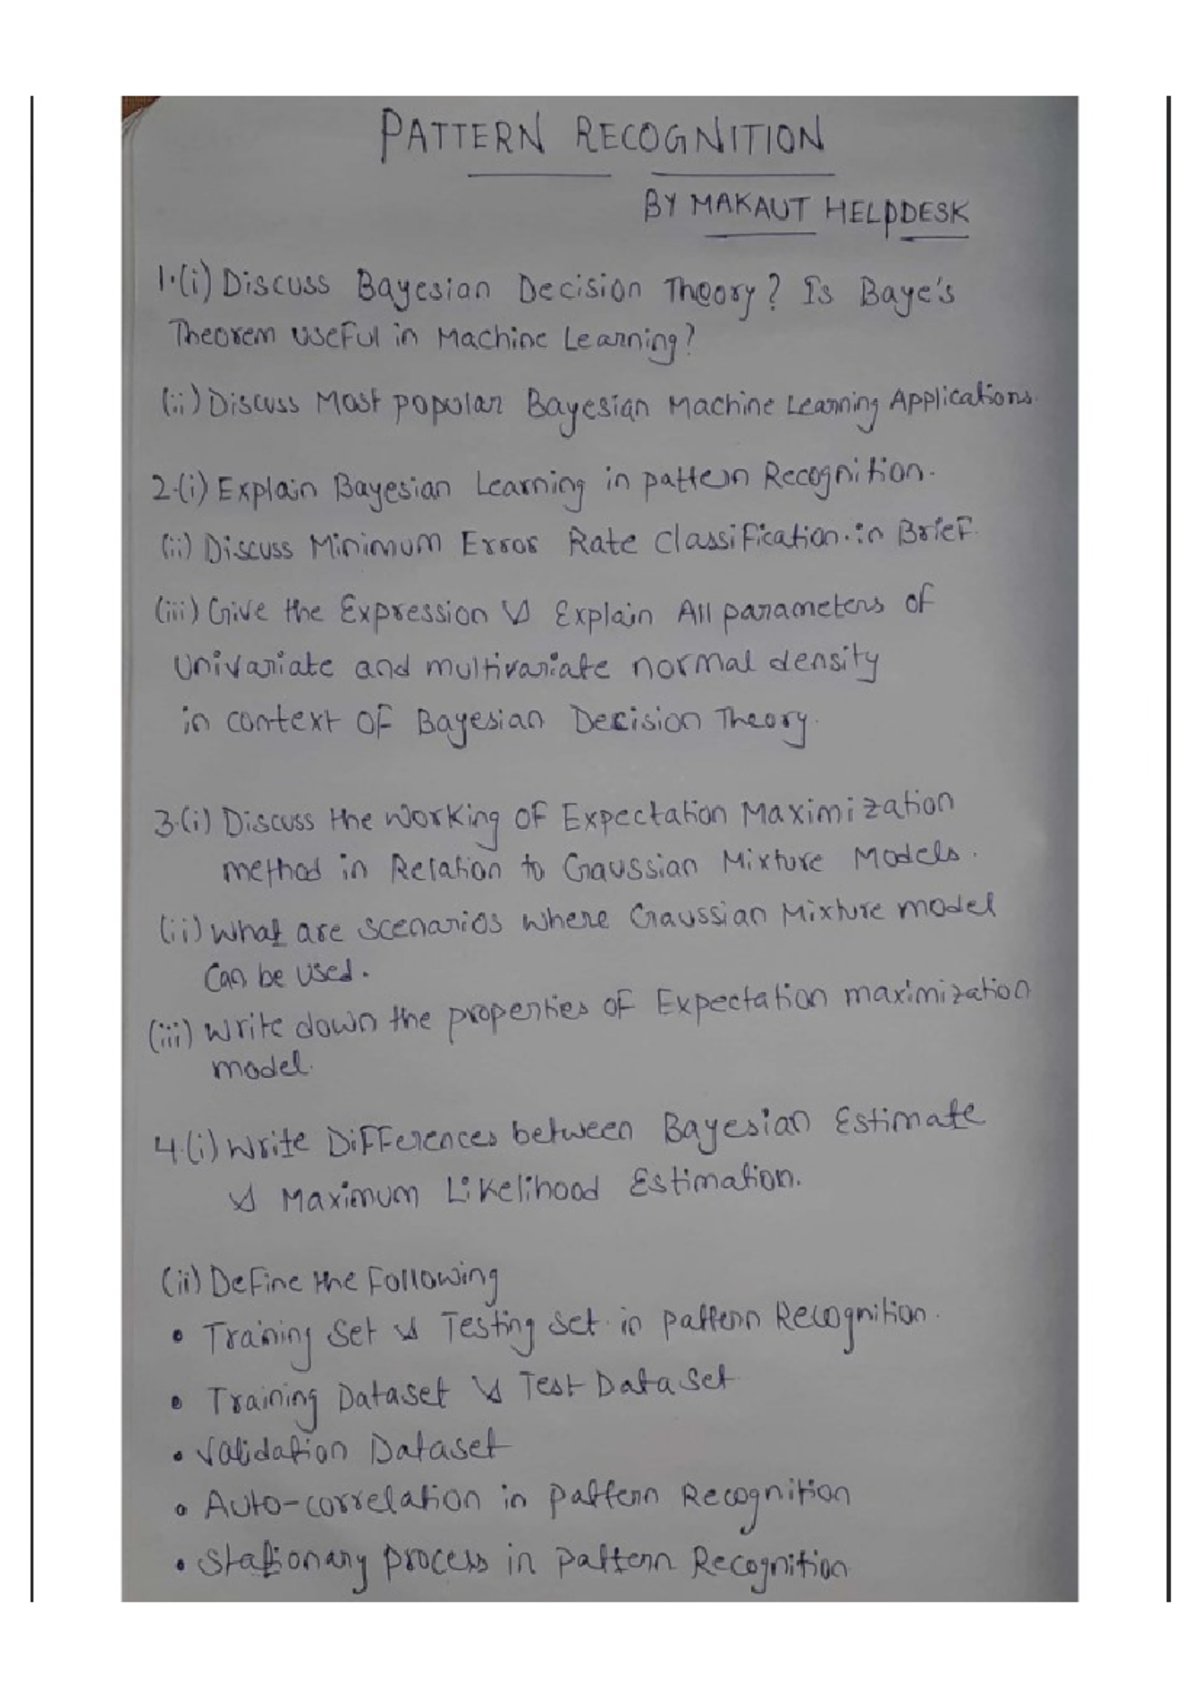 PATTERN RECOGNITION
BY MAKAUT HELPDESK
1.(i) Discuss Bayesian Decision Theory? Is Baye's
Theorem useful in Machine Learning?
(ii) Discuss Most popular Bayesian Machine Learning Applications.
2.(i) Explain Bayesian Learning in pattern Recognition.
(ii) Discuss Minimum Error Rate Classification. in Brief.
(iii) Give the Expression & Explain All parameters of
Univariate and multivariate normal density
in context of Bayesian Decision Theory.
3.(i) Discuss the Working of Expectation Maximization
method in Relation to Gaussian Mixture Models.
(ii) What are scenarios where Gaussian Mixture model
Can be used.
(iii) Write down the properties of Expectation maximization
model.
4.(i) Write Differences between Bayesian Estimate
& Maximum Likelihood Estimation.
(ii) Define the Following
• Training Set & Testing set. in pattern Recognition.
• Training Dataset & Test Dataset
• Validation Dataset
• Auto-correlation in pattern Recognition
• Stationary process in pattern Recognition